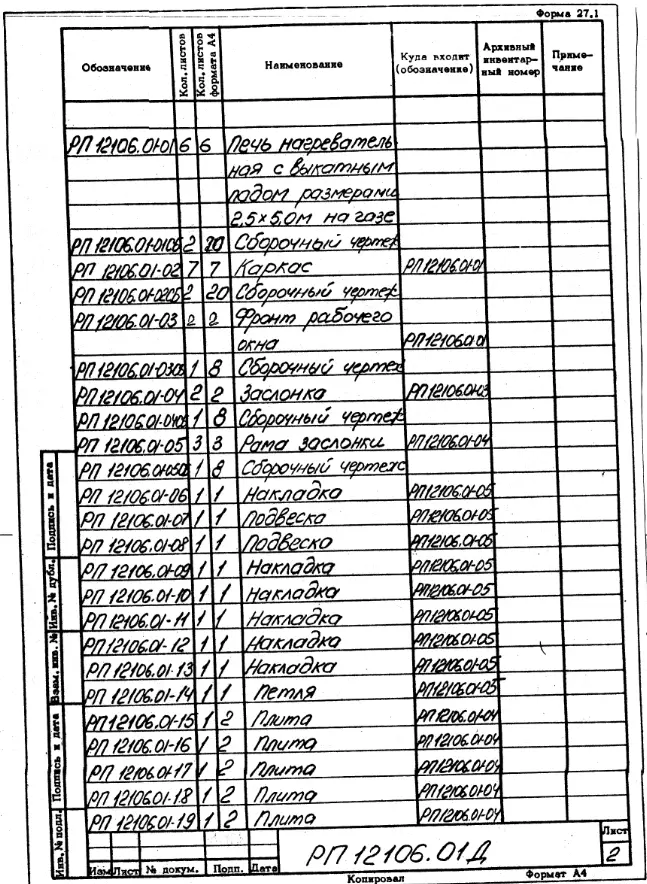 Форма 27.1
Обозначение Кол. листов Кол. листов формата А4 Наименование Куда входит (обозначение) Архивный инвентарный номер Примечание
РП 12106.01-01 6 6 Печь нагреватель
ная с выкатным
подом размерами
2,5×5,0м на газе
РП 12106.01-01СБ 2 20 Сборочный чертеж
РП 12106.01-02 7 7 Каркас РП 12106.01-01
РП 12106.01-02СБ 2 20 Сборочный чертеж
РП 12106.01-03 2 2 Фронт рабочего
окна РП 12106.01-01
РП 12106.01-03СБ 1 8 Сборочный чертеж
РП 12106.01-04 2 2 Заслонка РП 12106.01-03
РП 12106.01-04СБ 1 8 Сборочный чертеж
РП 12106.01-05 3 3 Рама заслонки РП 12106.01-04
РП 12106.01-05СБ 1 8 Сборочный чертеж
РП 12106.01-06 1 1 Накладка РП 12106.01-05
РП 12106.01-07 1 1 Подвеска РП 12106.01-05
РП 12106.01-08 1 1 Подвеска РП 12106.01-05
РП 12106.01-09 1 1 Накладка РП 12106.01-05
РП 12106.01-10 1 1 Накладка РП 12106.01-05
РП 12106.01-11 1 1 Накладка РП 12106.01-05
РП 12106.01-12 1 1 Накладка РП 12106.01-05
РП 12106.01-13 1 1 Накладка РП 12106.01-05
РП 12106.01-14 1 1 Петля РП 12106.01-05
РП 12106.01-15 1 2 Плита РП 12106.01-04
РП 12106.01-16 1 2 Плита РП 12106.01-04
РП 12106.01-17 1 2 Плита РП 12106.01-04
РП 12106.01-18 1 2 Плита РП 12106.01-04
РП 12106.01-19 1 2 Плита РП 12106.01-04
Подпись и дата
Инв. № дубл.
Взам. инв. №
Подпись и дата
Инв. № подл.
Изм Лист № докум. Подп. Дата
РП 12106.01Д
Лист
2
Копировал Формат А4